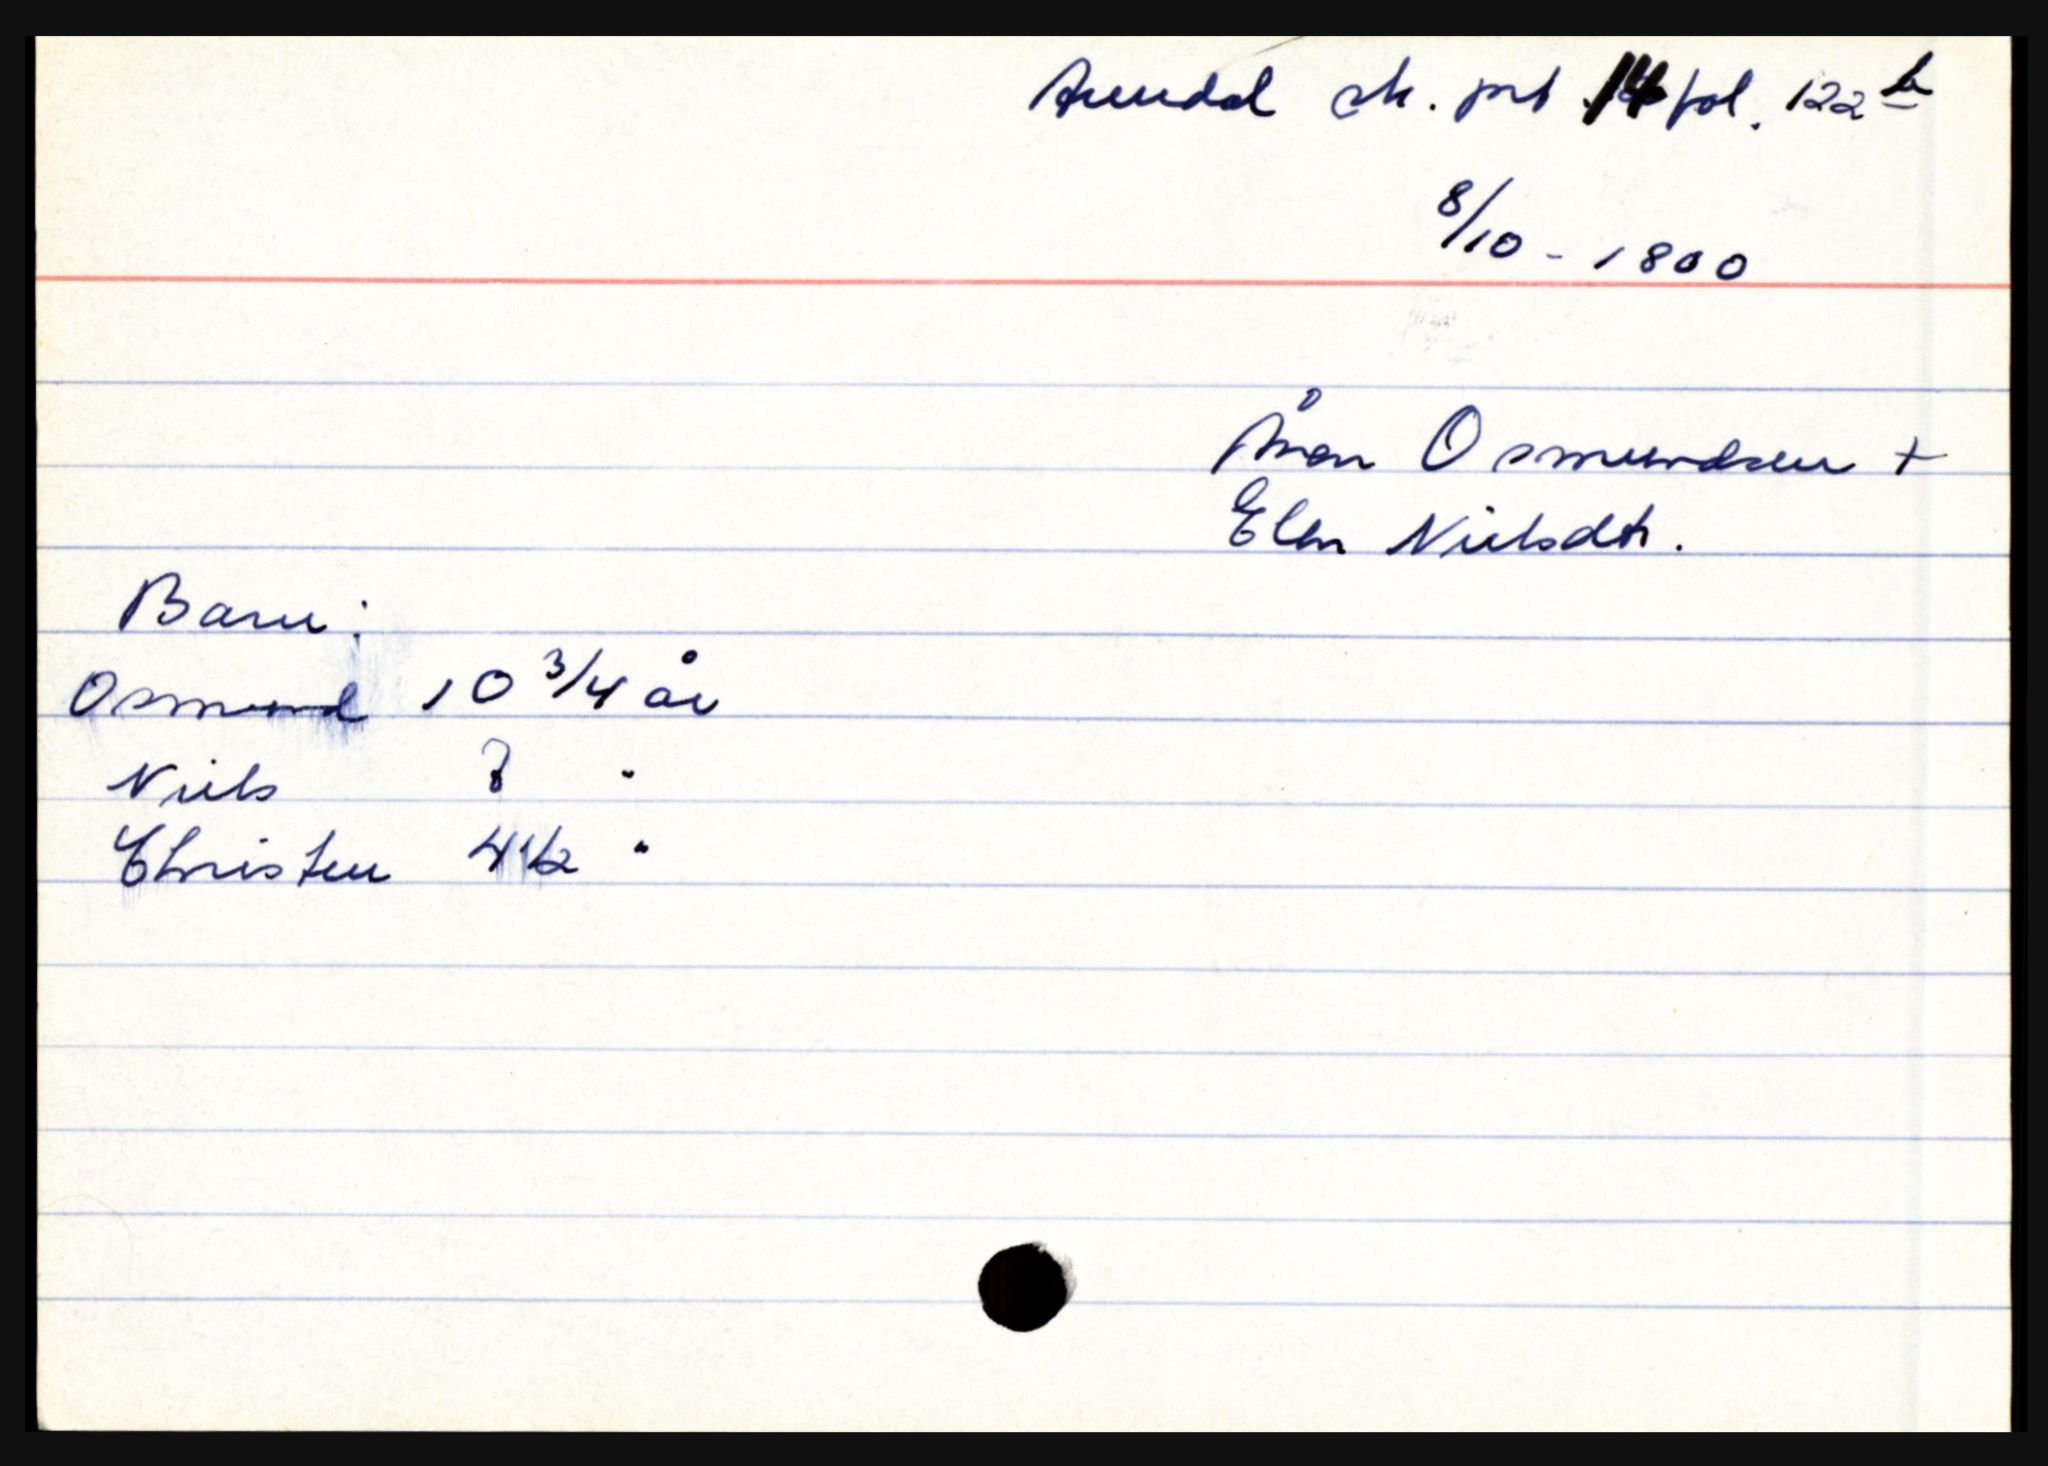 Arendal sk. prt 14 fol. 122 b
8/10 - 1800
Ånon Osmundsen +
Elen Nielsdtr.
Barn:
Osmund 10 3/4 år
Niels 8 "
Christen 4 1/2 "